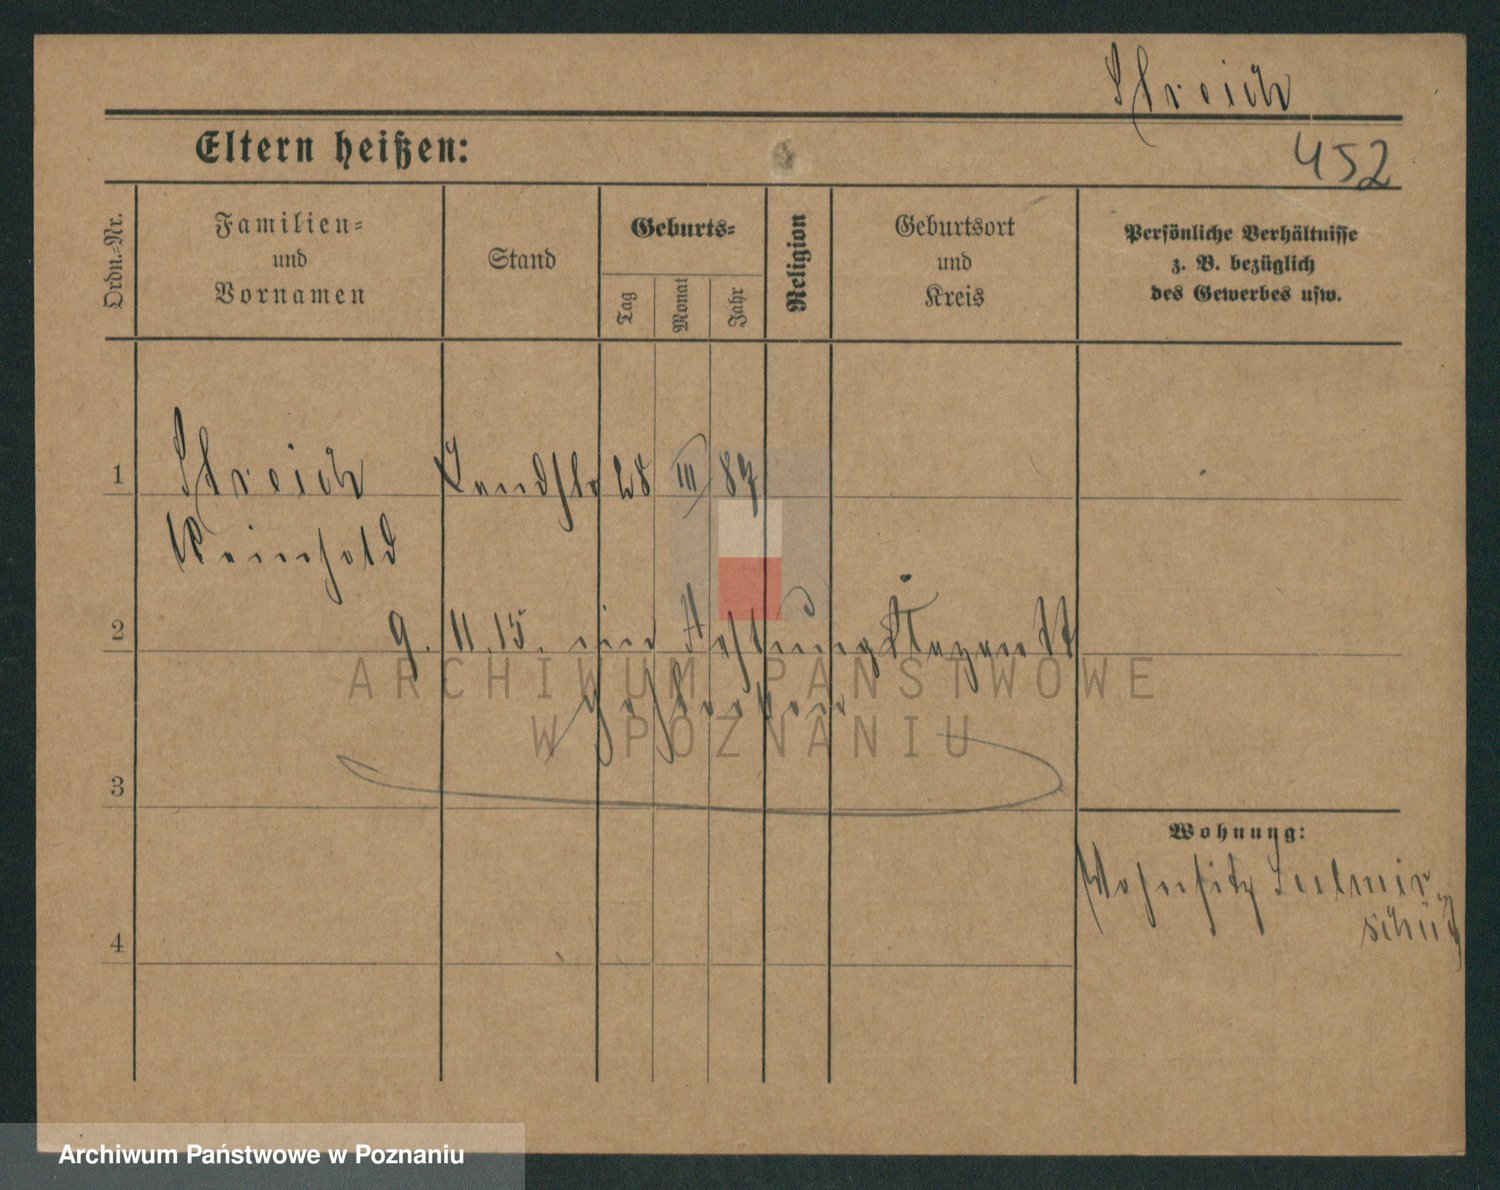 Streich
Eltern heißen:
452
Ordn.-Nr.
Familien-
und
Vornamen
Stand
Geburts-
Tag
Monat
Jahr
Religion
Geburtsort
und
Kreis
Persönliche Verhältnisse
z. B. bezüglich
des Gewerbes usw.
1 Streich 28 III 87
Reinhold
2 9. 11. 15. im Festungslazarett
gestorben
ARCHIWUM PAŃSTWOWE
W POZNANIU
3
Wohnung:
Wohnsitz Sulmir
schütz
4
Archiwum Państwowe w Poznaniu